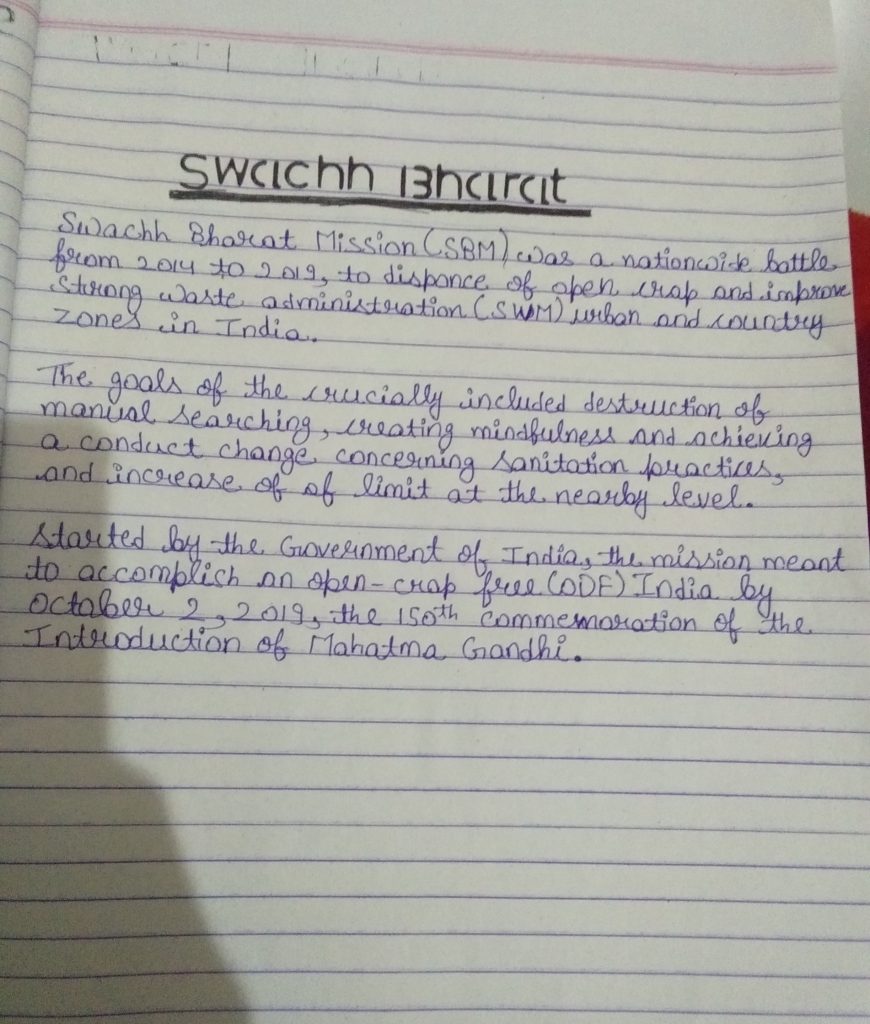 Swachh Bharat
Swachh Bharat Mission (SBM) was a nationwide battle
from 2014 to 2019, to disponce of open crap and improve
Strong waste administration (SWM) urban and country
zones in India.
The goals of the crucially included destruction of
manual searching, creating mindfulness and achieving
a conduct change concerning sanitation practices,
and increase of of limit at the nearby level.
Started by the Government of India, the mission meant
to accomplish an open-crap free (ODF) India by
October 2, 2019, the 150th commemoration of the
Introduction of Mahatma Gandhi.